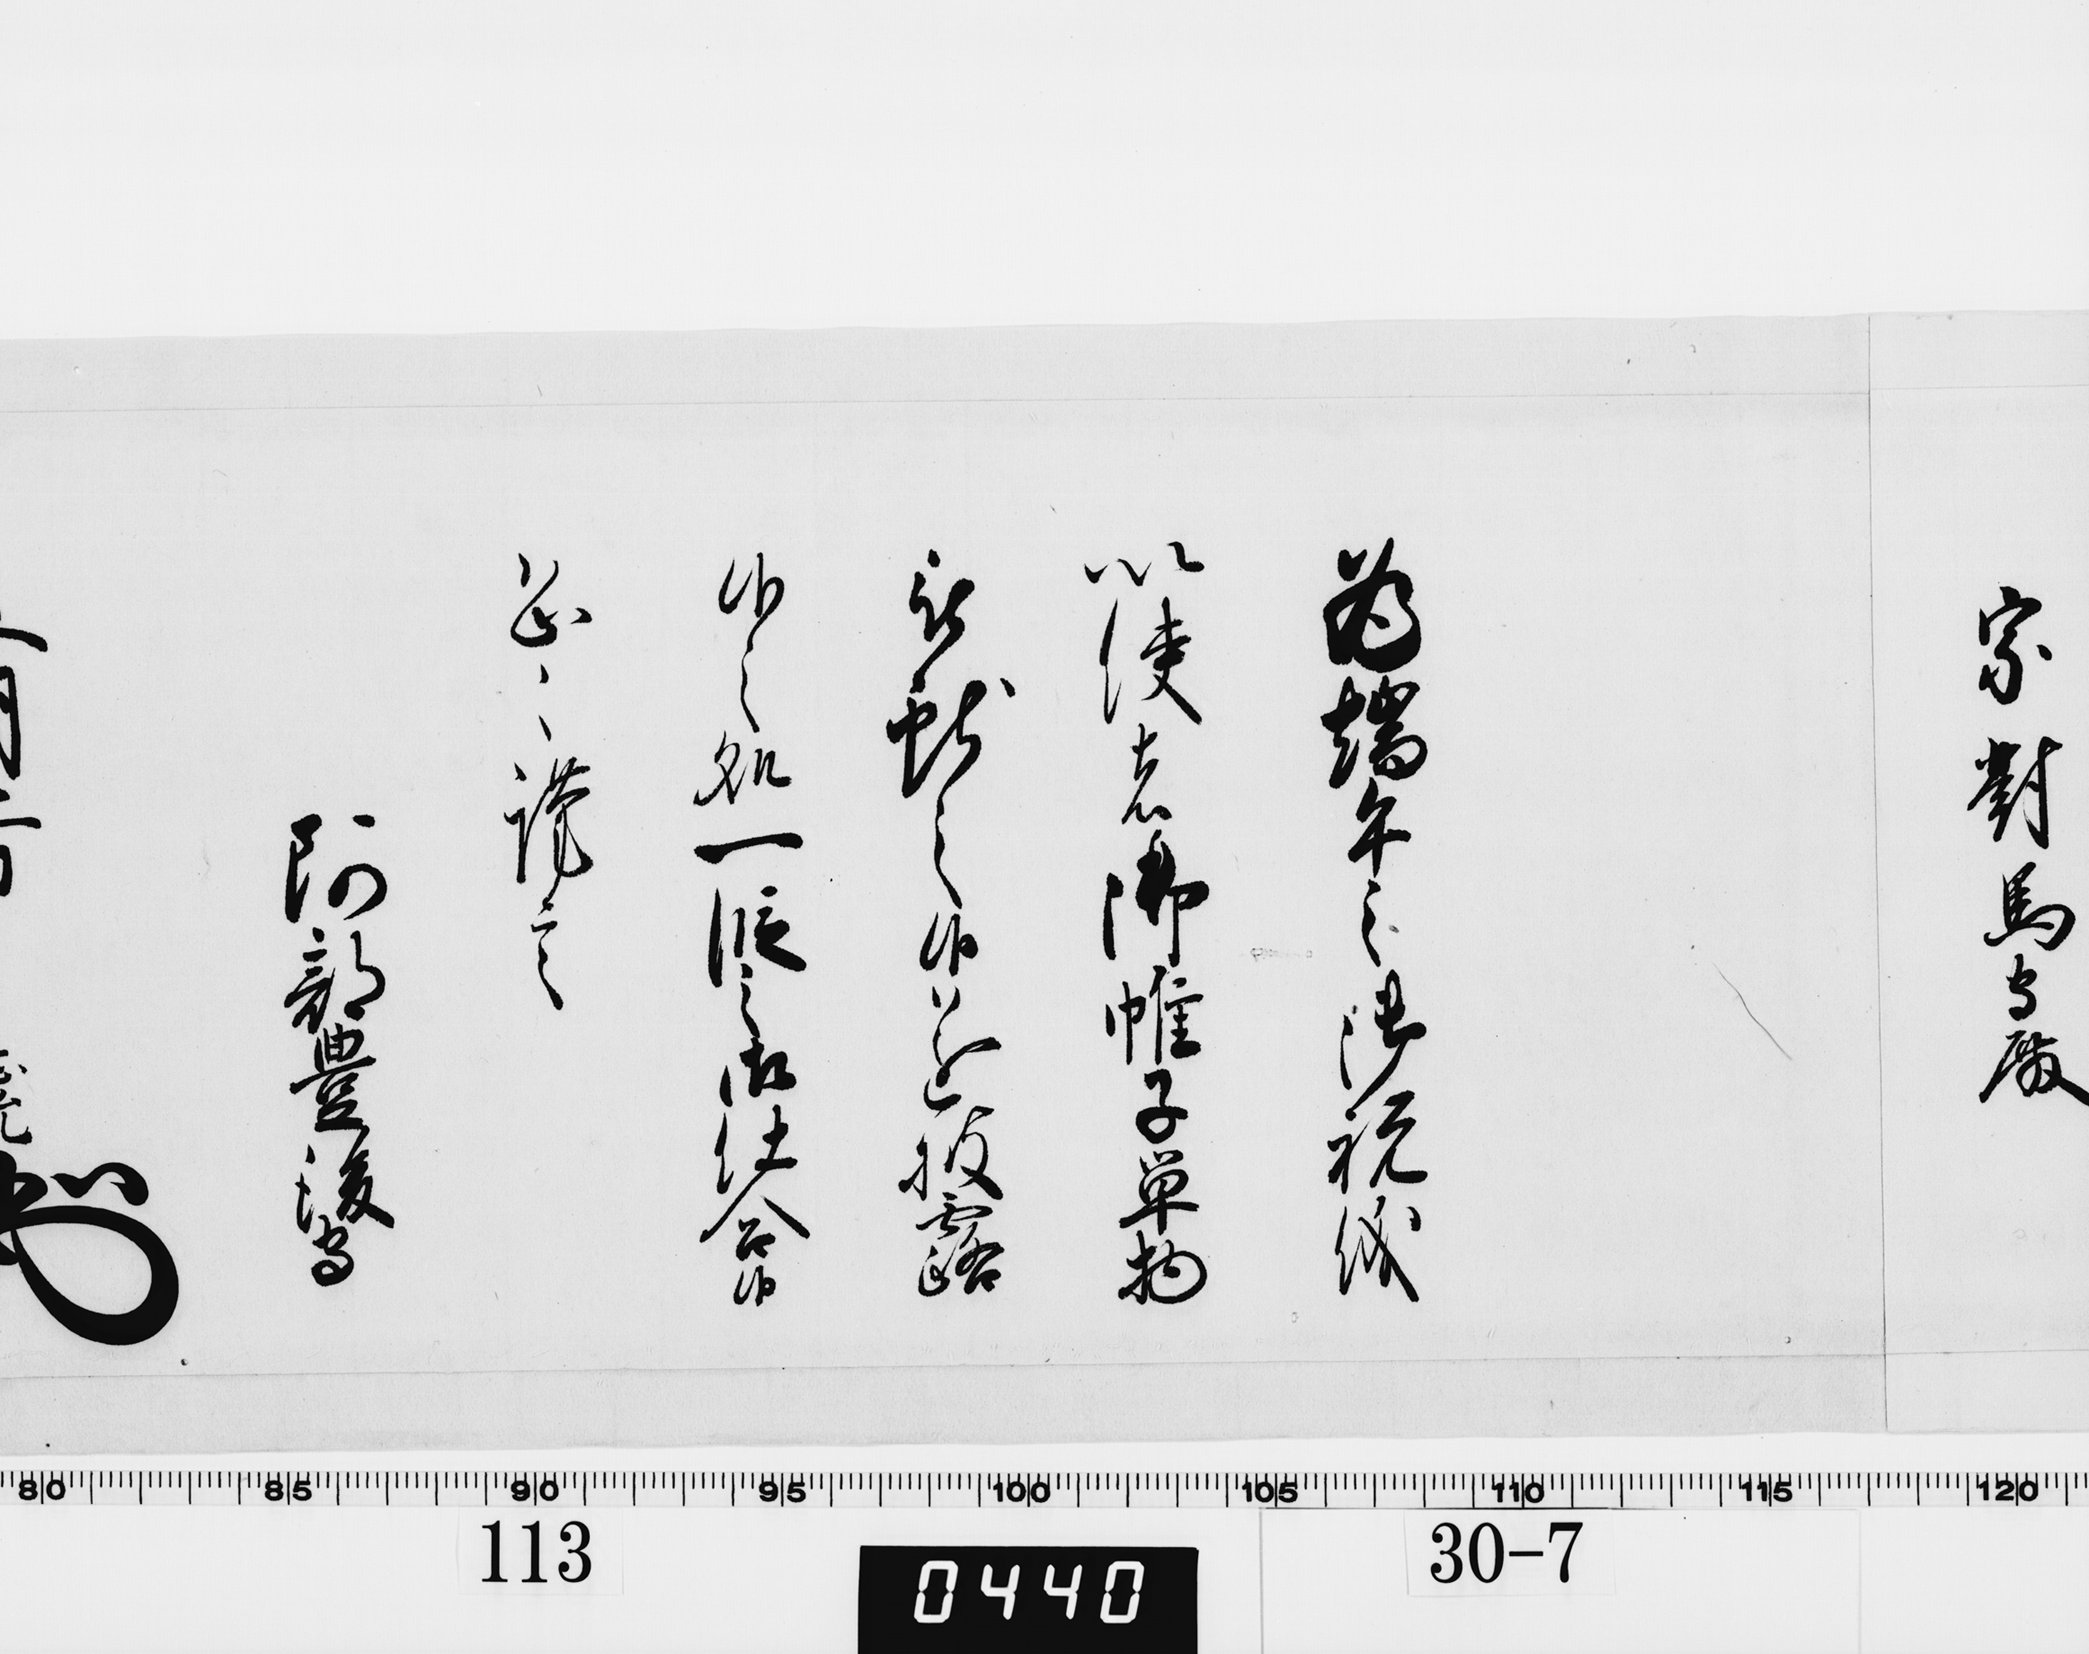 宗對馬守殿
為端午之御祝儀
以使者御帷子単物
被献之候遂披露
候之処一段之御仕合候
恐々謹言
阿部豊後守
月
80 85 90 95 100 105 110 115 120
113 30-7
0440